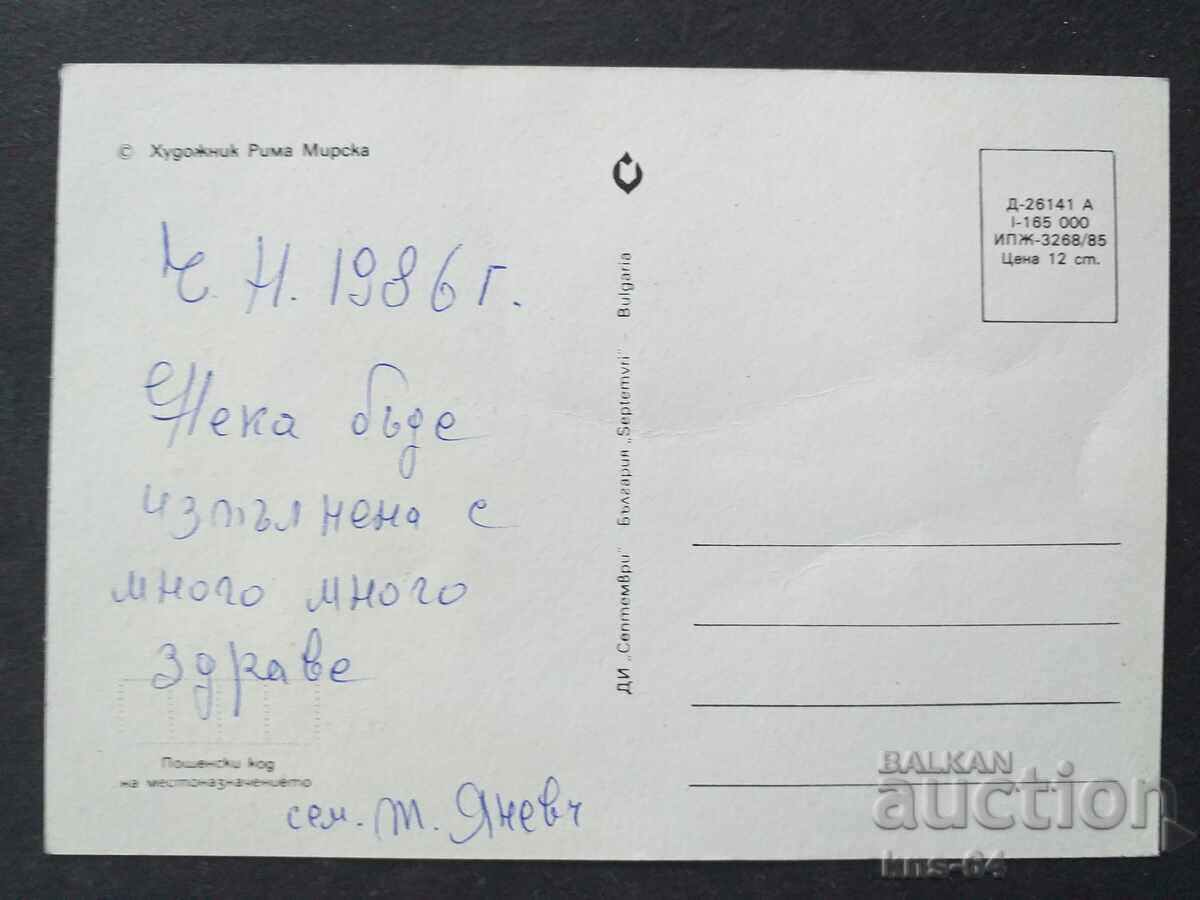 © Художник Рима Мирска
Ч. Н. 1986 г.
Нека бъде
изпълнена с
много много
здраве
Пощенски код
на местоназначението
сем. т. Яневи
ДИ „Септември" България „Septemvri" - Bulgaria
Д-26141 А
I-165 000
ИПЖ-3268/85
Цена 12 ст.
BALKAN
auction
kns-64